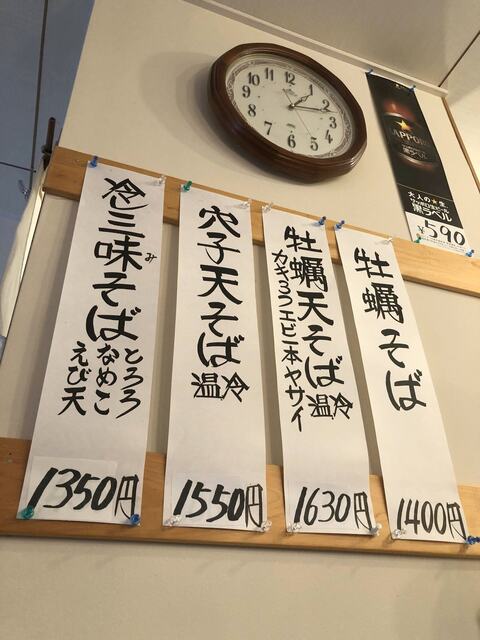 12
1
2
3
4
5
6
7
8
9
10
11
SAPPORO
大人の★生
黒ラベル
¥590
牡蠣そば
1400円
牡蠣天そば 冷温
カキ3つエビ一本ヤサイ
1630円
穴子天そば 冷温
1550円
冷三味そば
み
とろろ
なめこ
えび天
1350円